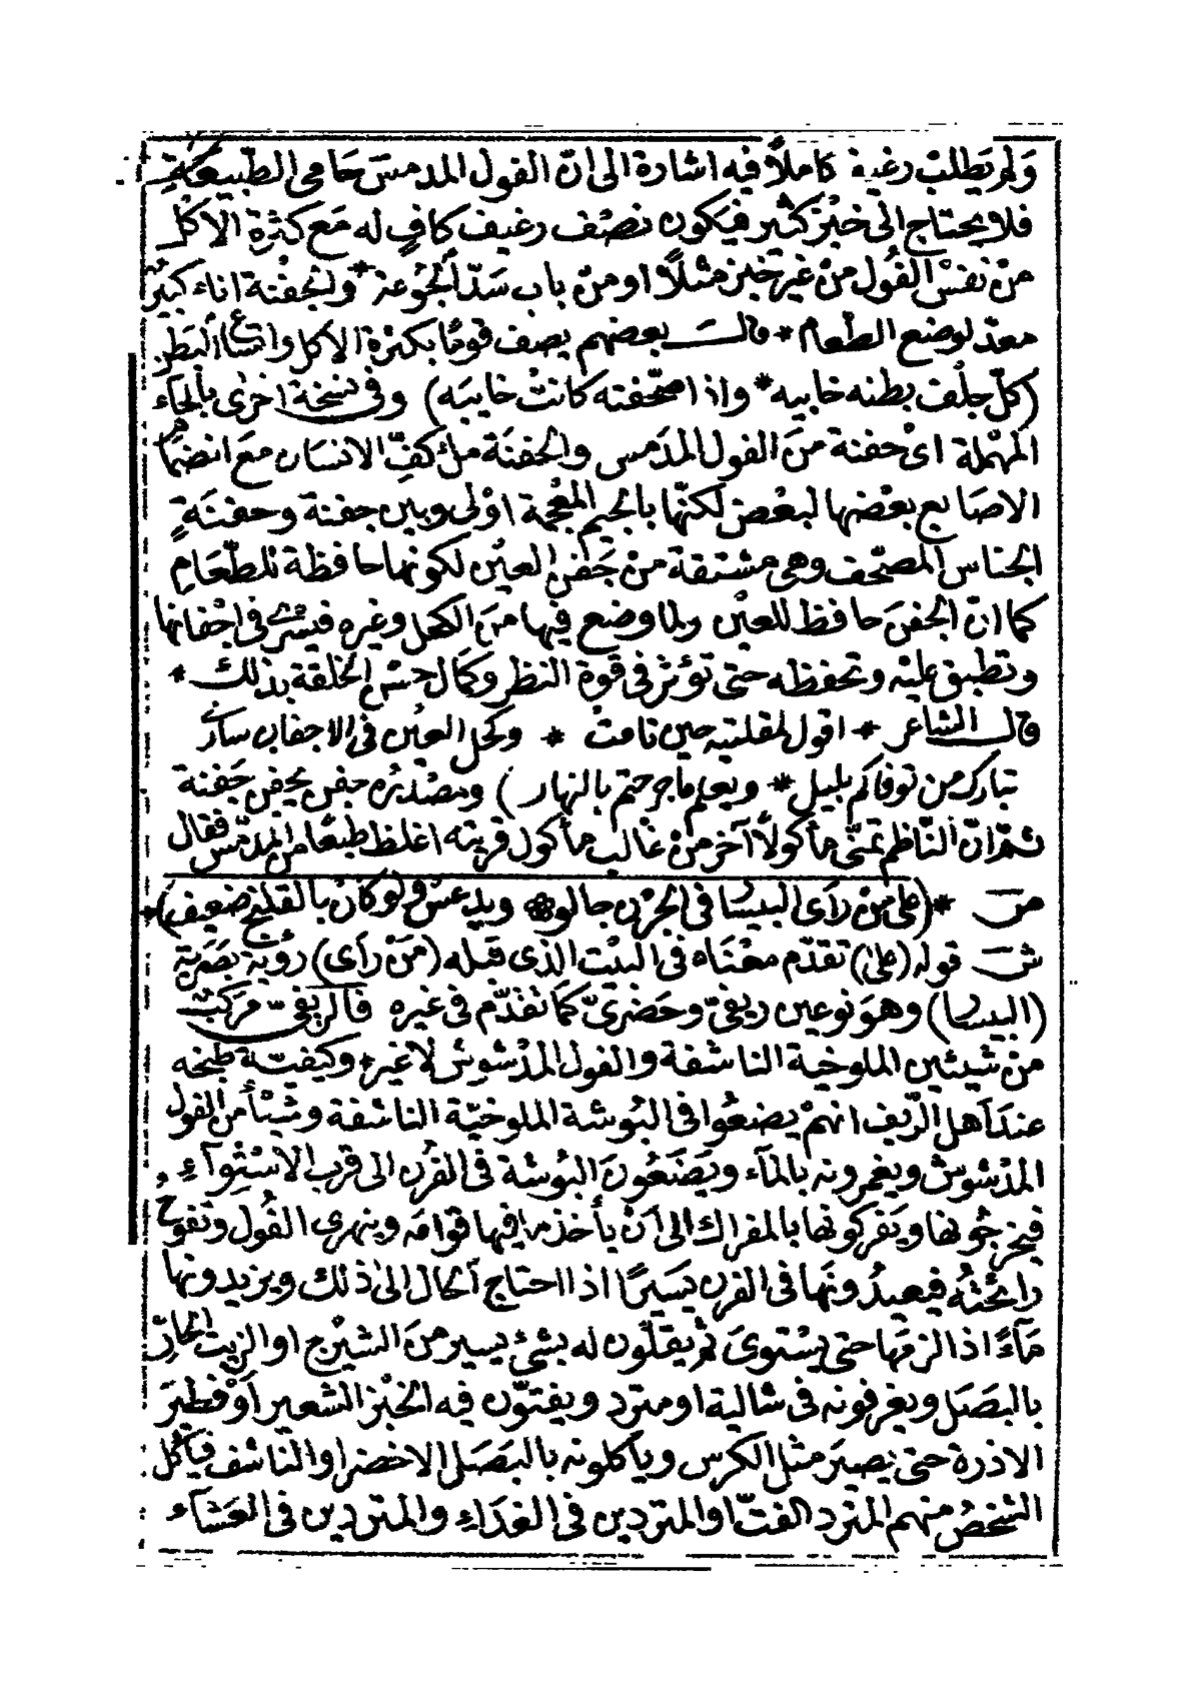 وَلم يَطلبْ رغيف كاملاً فيه اشارة الى انّ الفول المدمسَ حَامى الطّبيعَةِ
فلا يحتاج الى خبْز كثير فيَكون نصْف رغيف كافٍ له مَع كثرةِ الاكل
منْ نفسْ الفُول منْ غير خبز مثلًا او منْ باب سَدّ الجُوعة * والجفْنة اناء كبيرٌ
معدّ لوضع الطّعام * قالـــ بعضهم يصف قومًا بكثرة الاكل واتساع البَطن
(كلّ جلْف بطنه خابيه * واذا صحّفته كانتْ خايبَه) وفى نسْخة اخرٰى بالحَاء
المهْملة اىْ حفنة منَ الفول المدَمس والحفنَة ملء كفّ الانسَان معَ انضمَام
الاصَابع بعْضها لبعْض لكنّها بالجيم المعْجمة اوْلى وبين جفنة وحفنَةٍ
الجناس المصحّف وهى مشتقة منْ جَفن العيْن لكونها حافظة للطّعَامِ
كما انّ الجفنَ حافظ للعيْن ولما وضع فيها منَ الكحْل وغيره فيسْرى فى اجْفانها
وتطبق عليْه وتحفظه حتى تؤثر فى قوة النظر وكمَال حسْن الخلقة بذلك *
قالــ الشاعر * اقول لمقلتيه حين نامتْ * وكحل العيْن فى الاجفان سارى
تبارك من توفاكم بليل * ويعلم ما جرحتم بالنهار) ومصْدَرُه جفن يجفن جَفنة
ثمّ انّ النّاظم تمنّى مأكولاً آخر منْ غالب مأكول قريته اغلظ طبعًا من المدمّس فقال
صــ *(على منْ رَأى البيسَا فى الجرْن جالو * ويدعسْ ولوْ كانْ بالقليْح ضعيف)*
شــ قوله (على) تقدّم معْنَاه فى البيْت الذى قبْله (مَنْ رَأى) رؤية بَصَرية
(البيسا) وهوَ نوعين ريفىّ وحَضرىّ كمَا تقدّم فى غيره فالريفىّ مركّبٌ
منْ شيئين الملوخية الناشفة والفول المدْشوش لا غير * وكيفيّة طبخه
عندَ اَهل الرّيف انهمْ يضعُوا فى البُوشة الملوخيّة الناشفة وشيْأ من الفول
المدْشوش ويغمرونه بالمآء ويَضَعُونَ البُوشة فى الفُرن الى قرب الاسْتوآءِ
فيخرجُونها ويَفركونها بالمفراك الى اَنْ يأخذ ما فيها قوامَه وينهرى الفُول وتفوح
رائحْتهُ فيعيدُونَها فى الفرن يَسيرًا اذا احتاج الحَال الى ذلك ويزيدونها
مَآءً اذا لزمَها حتى يسْتوىَ ثم يقلّون له بشئ يسير منَ الشيْرج او الزيت الحَارّ
بالبصَل ويغرفونه فى شالية او مترد ويفتّون فيه الخبْز الشعير اَوْ فطيرَ
الاذرة حتى يصيرَ مثل الكرس ويأكلونه بالبَصَل الاخضر او النّاشف فيَأكل
الشخْصُ منهم المترد الفتّ او المتردين فى الغدَاءِ والمتردين فى العَشَآء